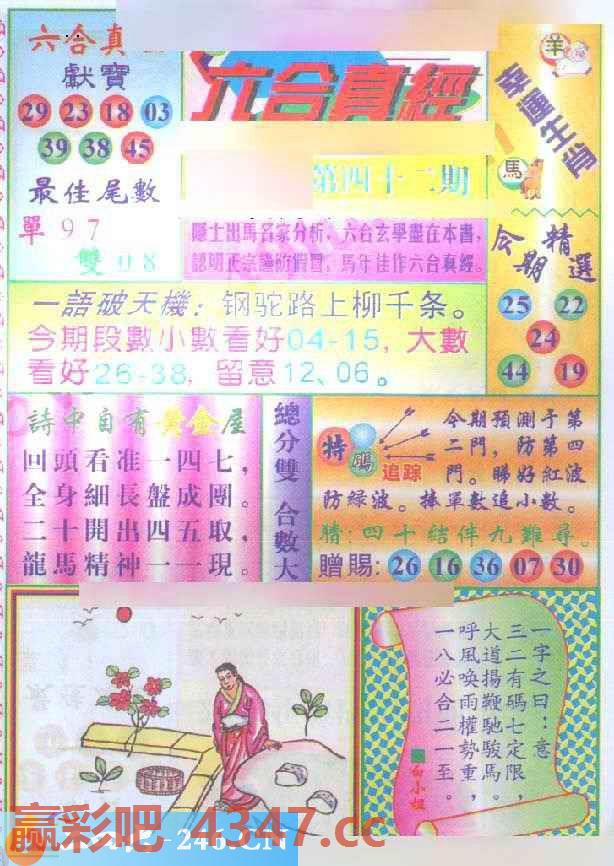 六合真
獻寶
29 23 18 03
39 38 45
最佳尾數
單 9 7
雙 0 8
六合真經
第四十二期
隱士出馬名家分析，六合玄學盡在本書，
認明正宗謹防假冒，馬年佳作六合真經。
羊
幸運生肖
馬
今期精選
25 22
24
44 19
一語破天機：钢驼路上柳千条。
今期段數小數看好04-15，大數
看好26-38，留意12、06。
詩中自有黃金屋
回頭看准一四七，
全身細長盤成團。
二十開出四五取，
龍馬精神一一現。
總分雙 合數大
特碼
追踪
今期預測予第
二門，防第四
門。睇好紅波
防綠波。捧單數追小數。
猜：四十结伴九難尋。
贈賜：26 16 36 07 30
一字之曰：意
三二有碼七定限，
大道揚鞭馳駿馬。
呼風喚雨權勢重，
一八必合二一至。
白小姐
赢彩吧 4347.cc
246.CN